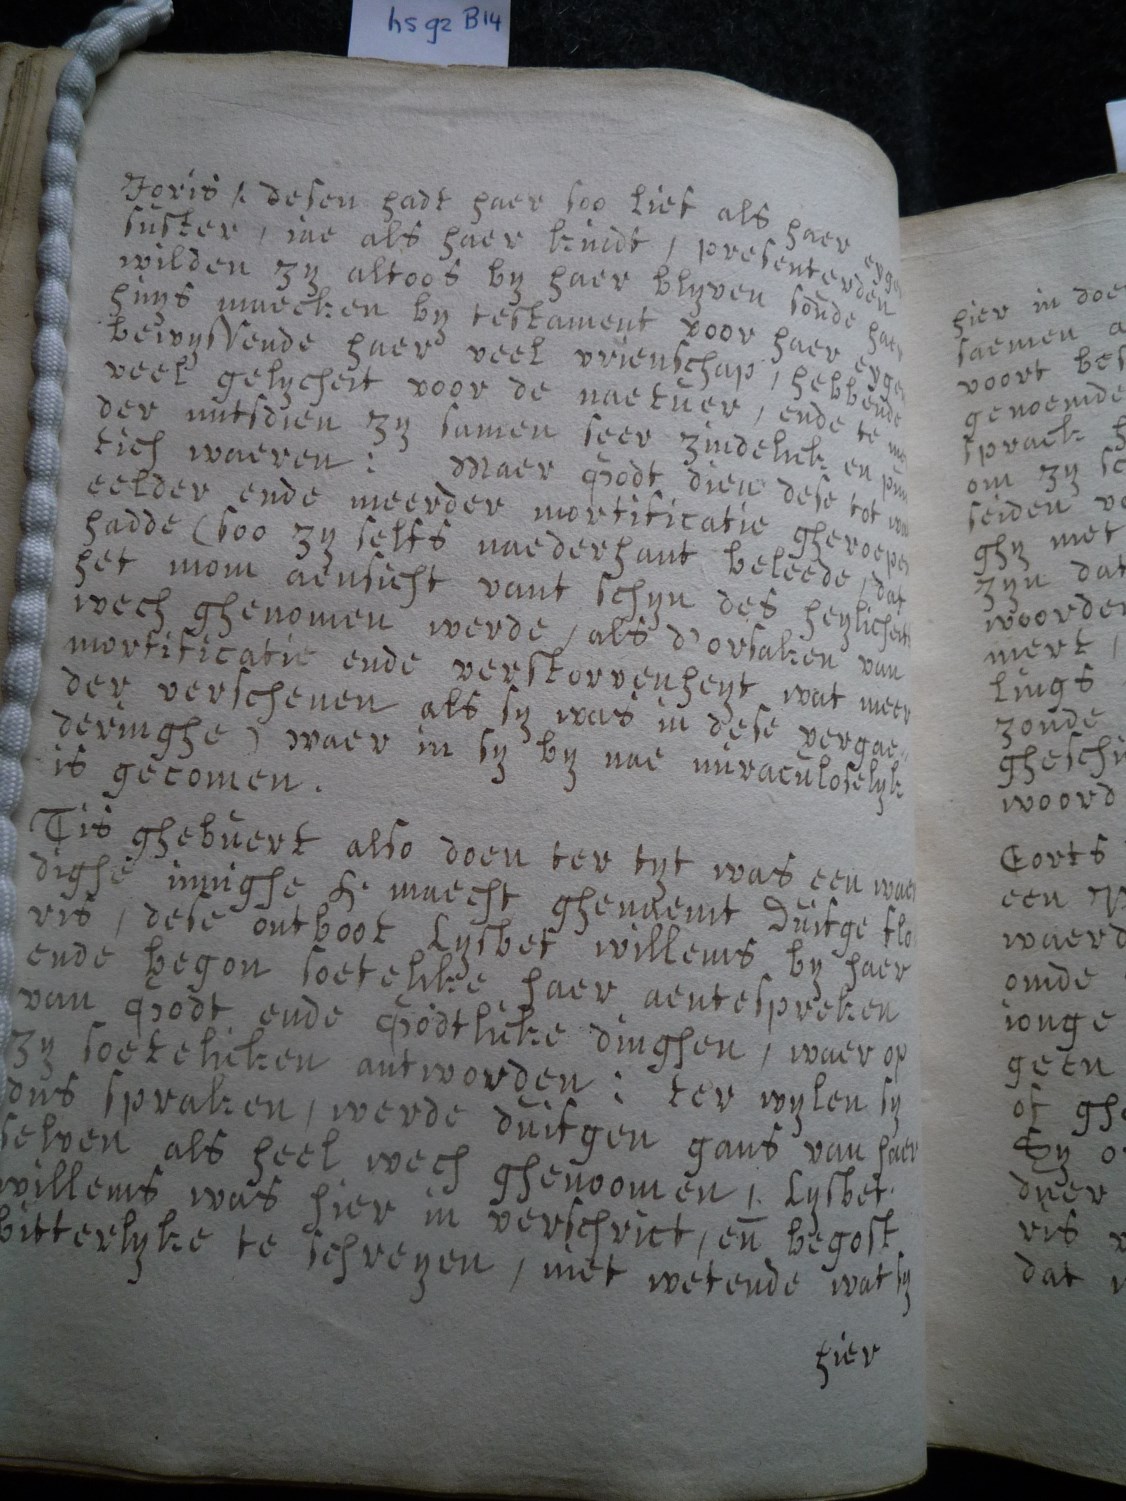 hs 92 B14
Joris / desen hadt haer soo lief als haer eygen
suster / iae als haer kindt / presenterden
wilden zy altoos by haer blyven soude haer
huys maecken by testament voor haer eygen
bewyssende haer veel vrienschap / hebbende
veel gelycheit voor de naetuer / ende te me
der mitsdien zy samen seer zindelick en pun
tich waeren : Maer Godt dien dese tot
eelder ende meerder mortificatie gheroepen
hadde (soo zy selfs naederhant beleede / dat
het mom aensicht vant schyn des heylicheits
wech ghenomen werde / als d'orsaken van
mortificatie ende verstorvenheyt wat meer
der verschenen als sy was in dese vergae-
deringhe) waer in sy by nae miraculoselyk
is gecomen.
Tis ghebuert also doen ter tyt was een waer
dighe innighe h. maecht ghenaemt Duitge flo
ris / dese ontboot Lysbet willems by haer
ende begon soetelike haer aentespreken
van Godt ende Godtlicke dinghen / waer op
zy soetelicken antworden : ter wylen sy
dus spraken / werde duitgen gans van haer
selven als heel wech ghenoomen / Lysbet
willems was hier in verschrict / en̄ begost
bitterlyke te schreyen / niet wetende wat sy
hier
hier in doe
saemen a
voort bes
genoemde
sprack h
om zy sc
seiden ve
ghy met
zyn dat
woorden
mert /
lings
zonde
gheschi
woord
Corts
een
waerd
omde
ionge
geen
of gh
Sy o
duer
ris v
dat